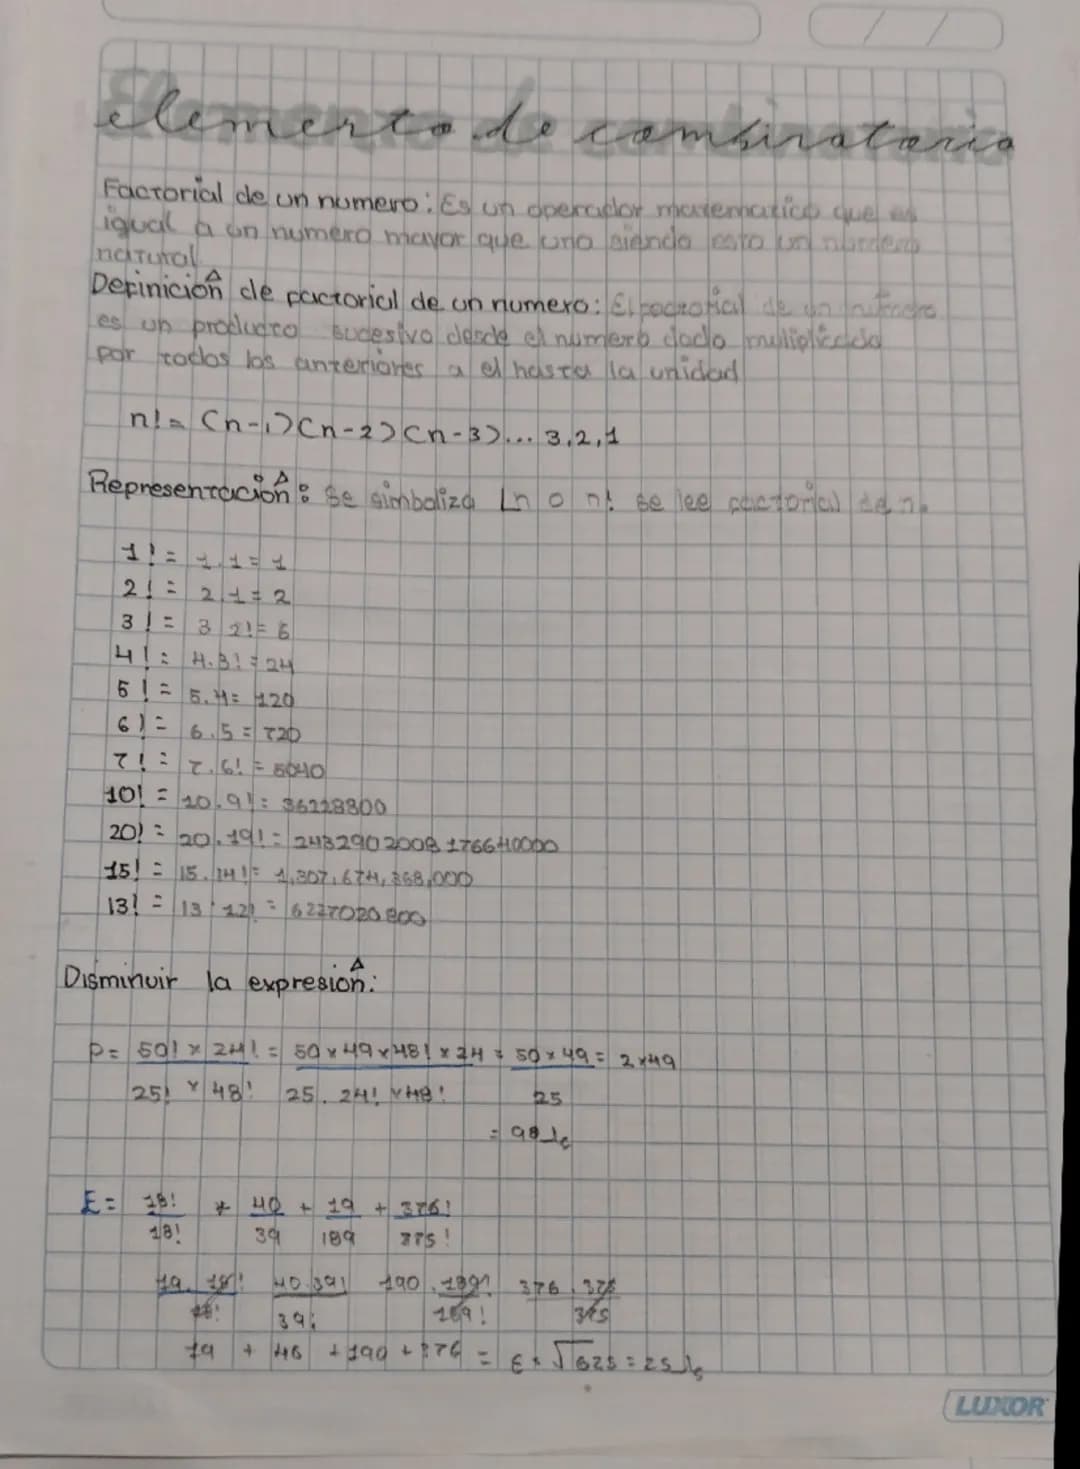 elemento de combinatoria
Factorial de un numero: Es un operador matematico que es
igual a un numero mayor que uno siendo esto un numero
natural
Definición de factorial de un numero: El factorial de un numero
es un producto sucesivo desde el numero dado multiplicado
por todos los anteriores a el hasta la unidad
n! = (n-1)(n-2)(n-3)... 3,2,1
Representación: Se simboliza Ln o n! se lee factorial de n.
1! = 1.1 = 1
2! = 2.1 = 2
3! = 3 2! = 6
4! = 4.3! = 24
5! = 5.4 = 120
6! = 6.5 = 720
7! = 7.6! = 5040
10! = 10.9! = 36228800
20! = 20.19! = 2432902008176640000
15! = 15.14! = 1,307,674,368,000
13! = 13.12! = 6227020800
Disminuir la expresión:
P = 50! x 24! = 50 x 49 x 48! x 24 = 50 x 49 = 2 x 49
25! x 48! 25. 24! x 48! 25
= 98
E = 18! + 40 + 19 + 376!
18! 39 189 375!
19. 18! 40.39! 190.189! 376.375
18! 39! 189! 375
19 + 40 + 190 + 376 = E + √625 = 25
LUXOR